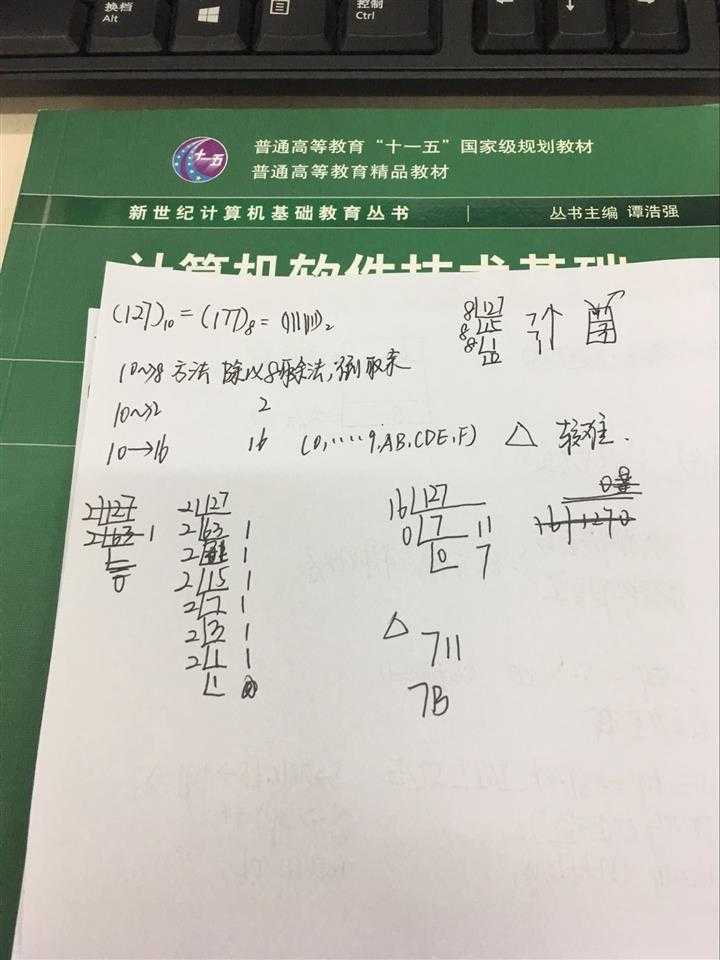 换档
Alt
控制
Ctrl
十一五
普通高等教育“十一五”国家级规划教材
普通高等教育精品教材
新世纪计算机基础教育丛书
丛书主编 谭浩强
计算机软件技术基础
(127)₁₀ = (177)₈ = (1111111)₂
8 127
8 15
8 1
10→8 方法 除以8除法,倒取来
10→2 2
10→16 16 (0,.....9,AB,CDE,F) △ 较难.
2 127
2 63 1
0
2 127
2 63 1
2 1
2 15 1
2 7 1
2 3 1
2 1 1
1
16 127
0 7 11
0 7
16 1270
△
711
7B